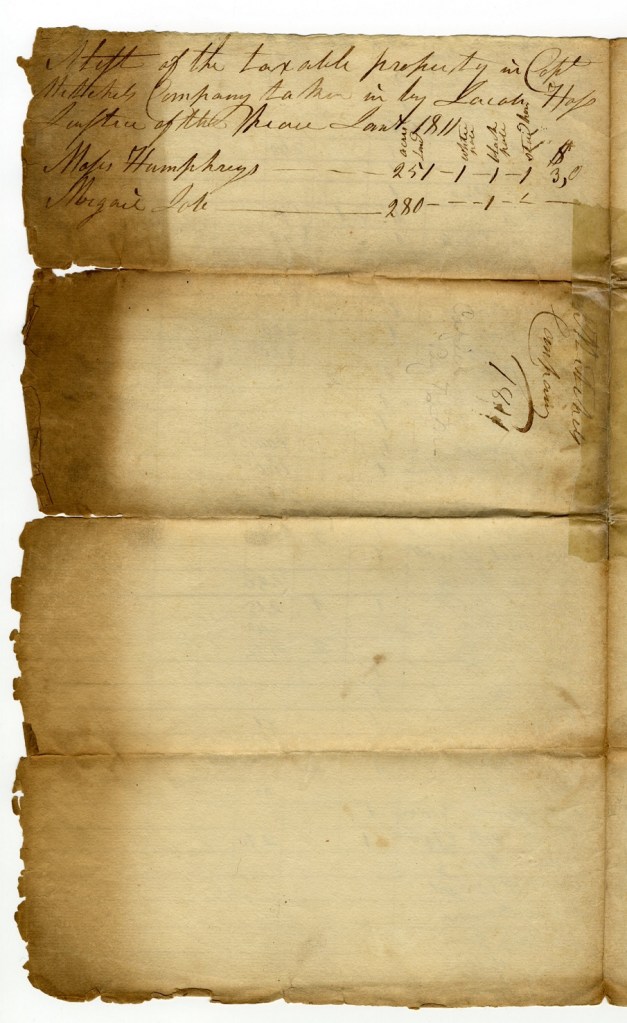 A list of the taxable property in Capt
Company taken in by Jacob Hoss
Justice of the Peace Jany 1811
acres land white pole black pole stud horse $
Moses Humphreys 251 - 1 - 1 - 1 3,0
Abigail Job 280 - - - 1 - - -
Company
1811